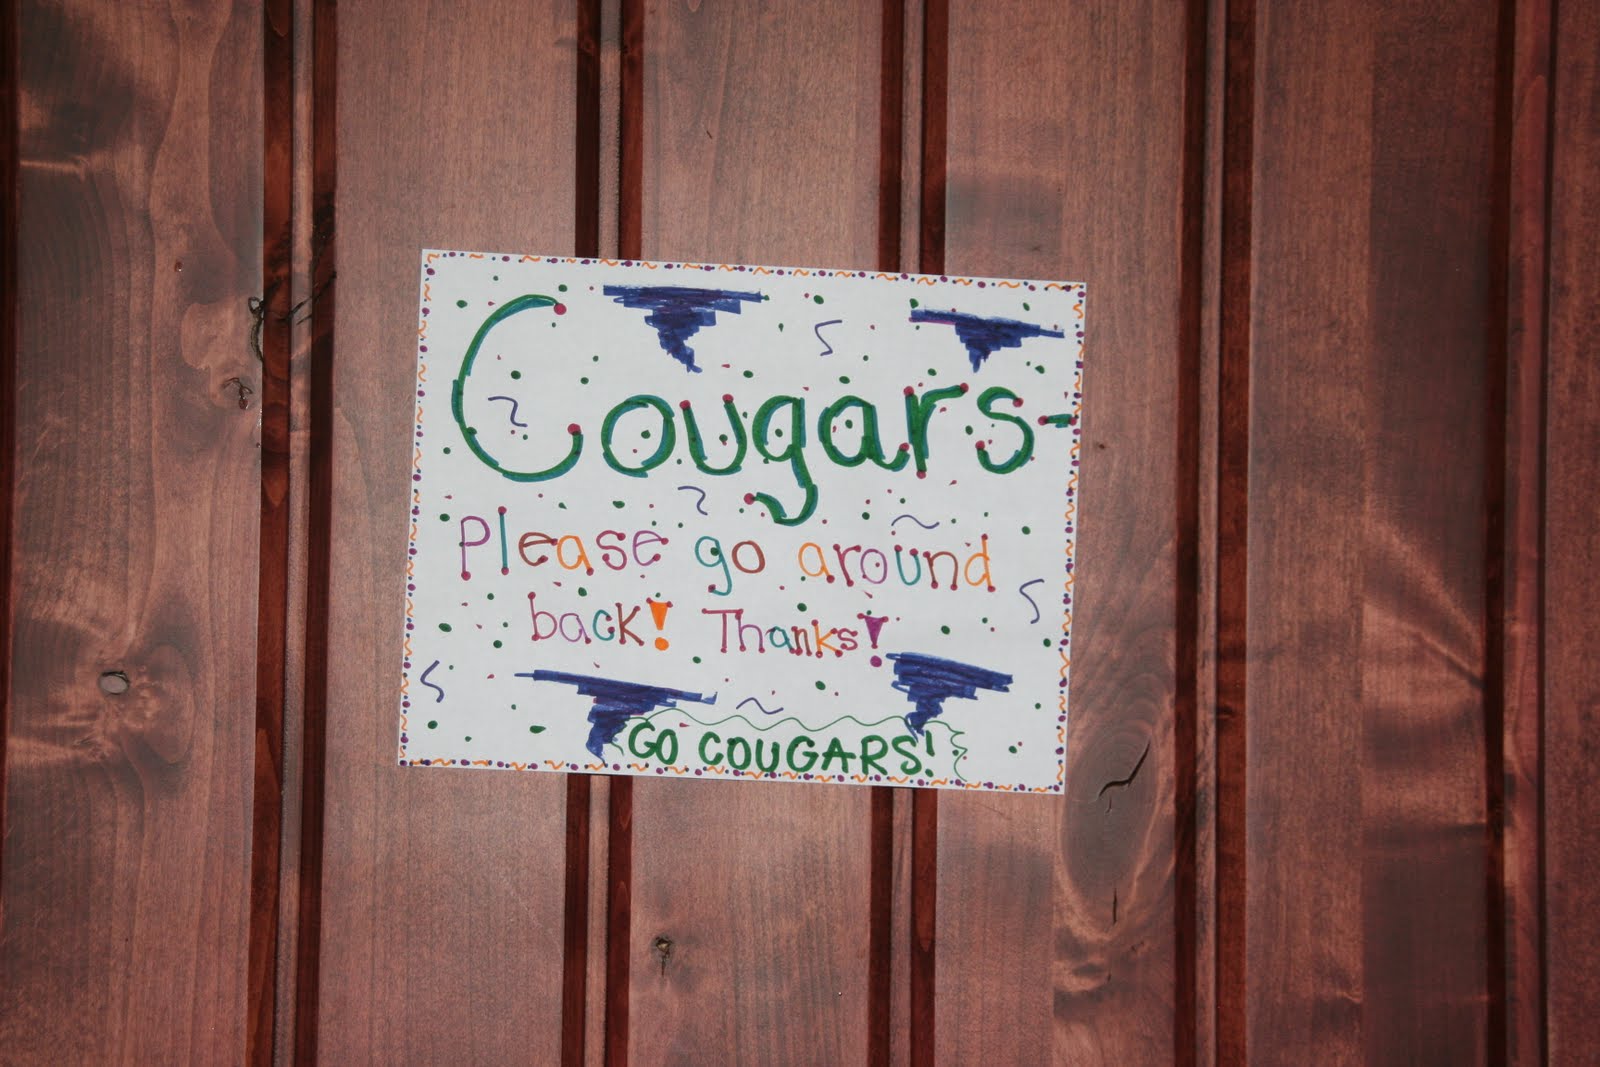 Cougars-
Please go around
back! Thanks!
GO COUGARS!